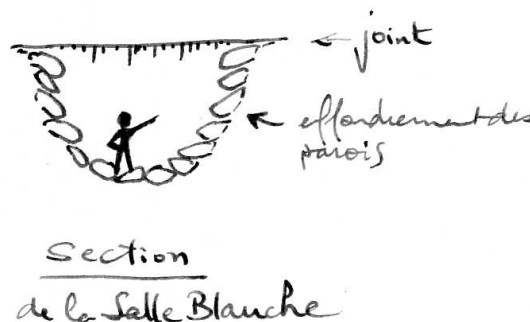 joint
effondrement des
parois
Section
de la Salle Blanche